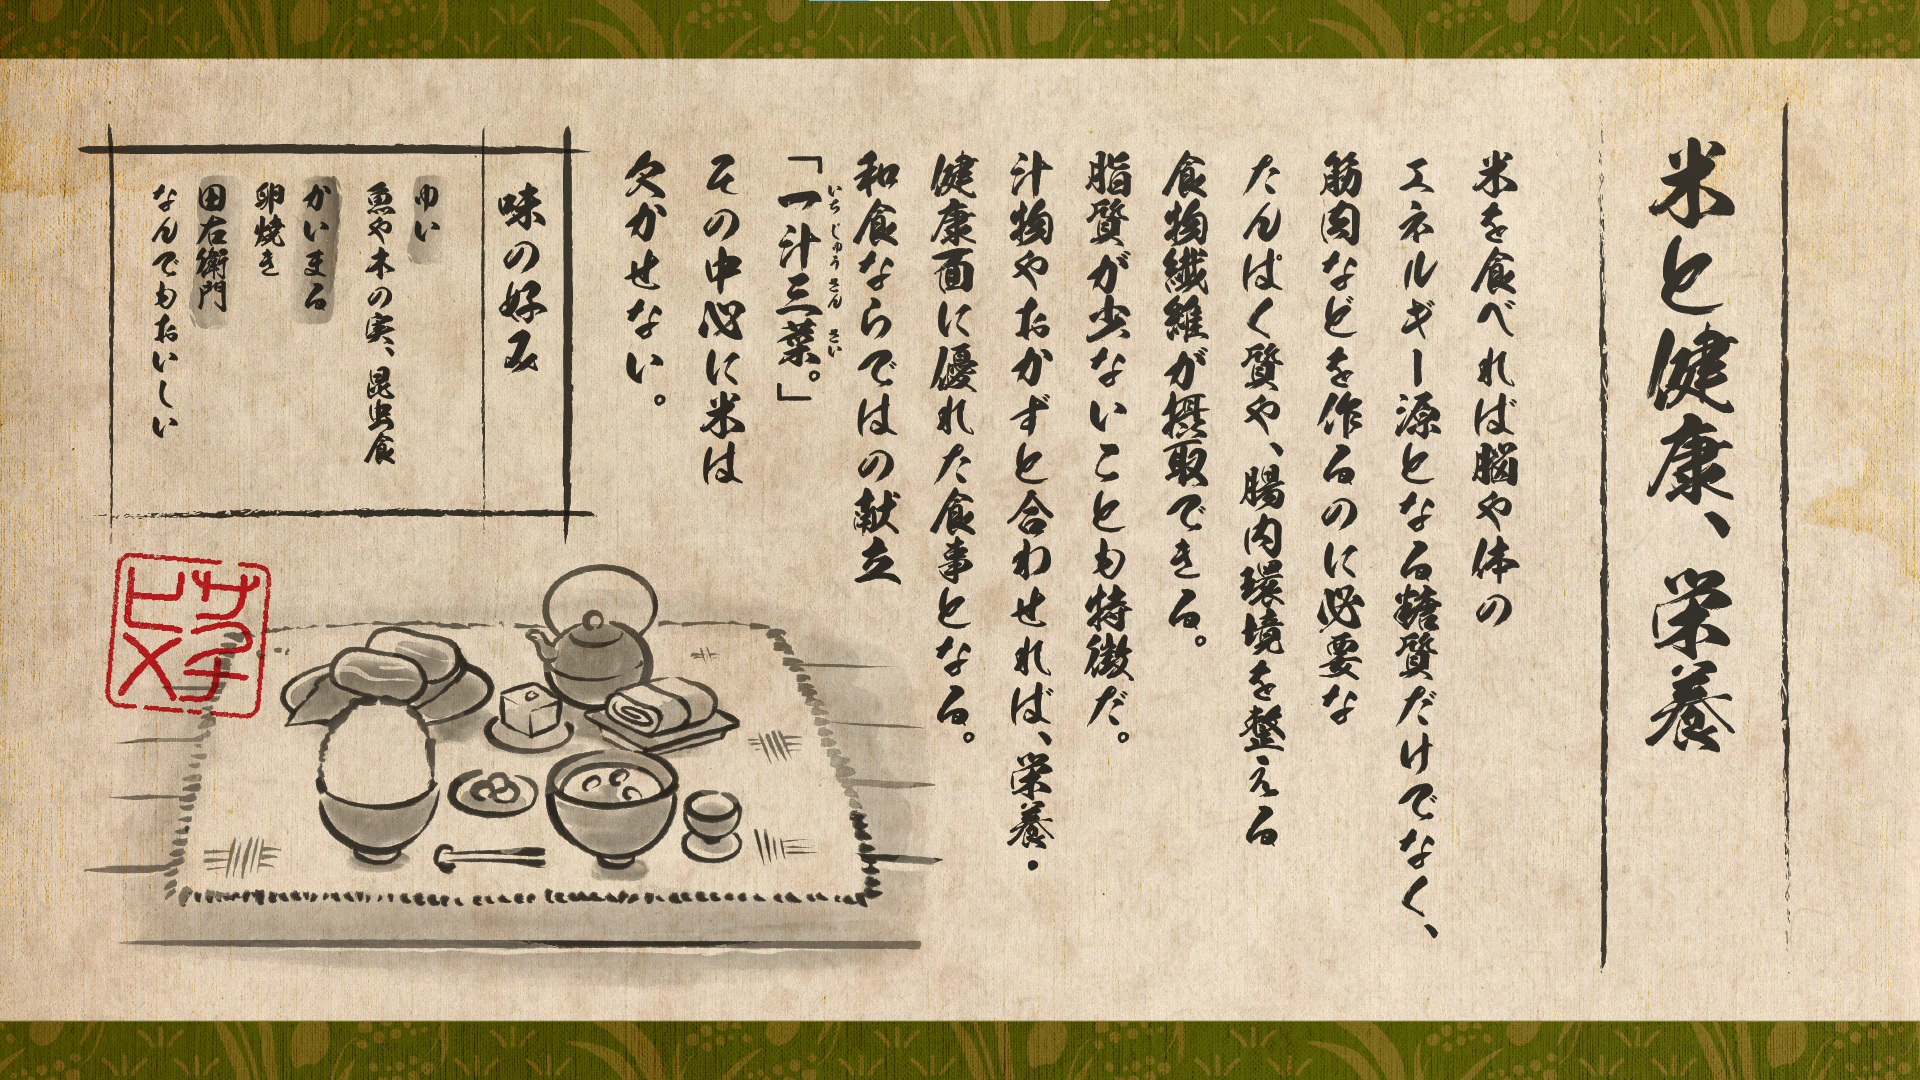 米と健康、栄養
米を食べれば脳や体の
エネルギー源となる糖質だけでなく、
筋肉などを作るのに必要な
たんぱく質や、腸内環境を整える
食物繊維が摂取できる。
脂質が少ないことも特徴だ。
汁物やおかずと合わせれば、栄養・
健康面に優れた食事となる。
和食ならではの献立
「一汁三菜。」
いちじゅうさんさい
その中心に米は
欠かせない。
味の好み
ゆい
魚や木の実、昆虫食
かいまる
卵焼き
田右衛門
なんでもおいしい
サクナ
ヒメ